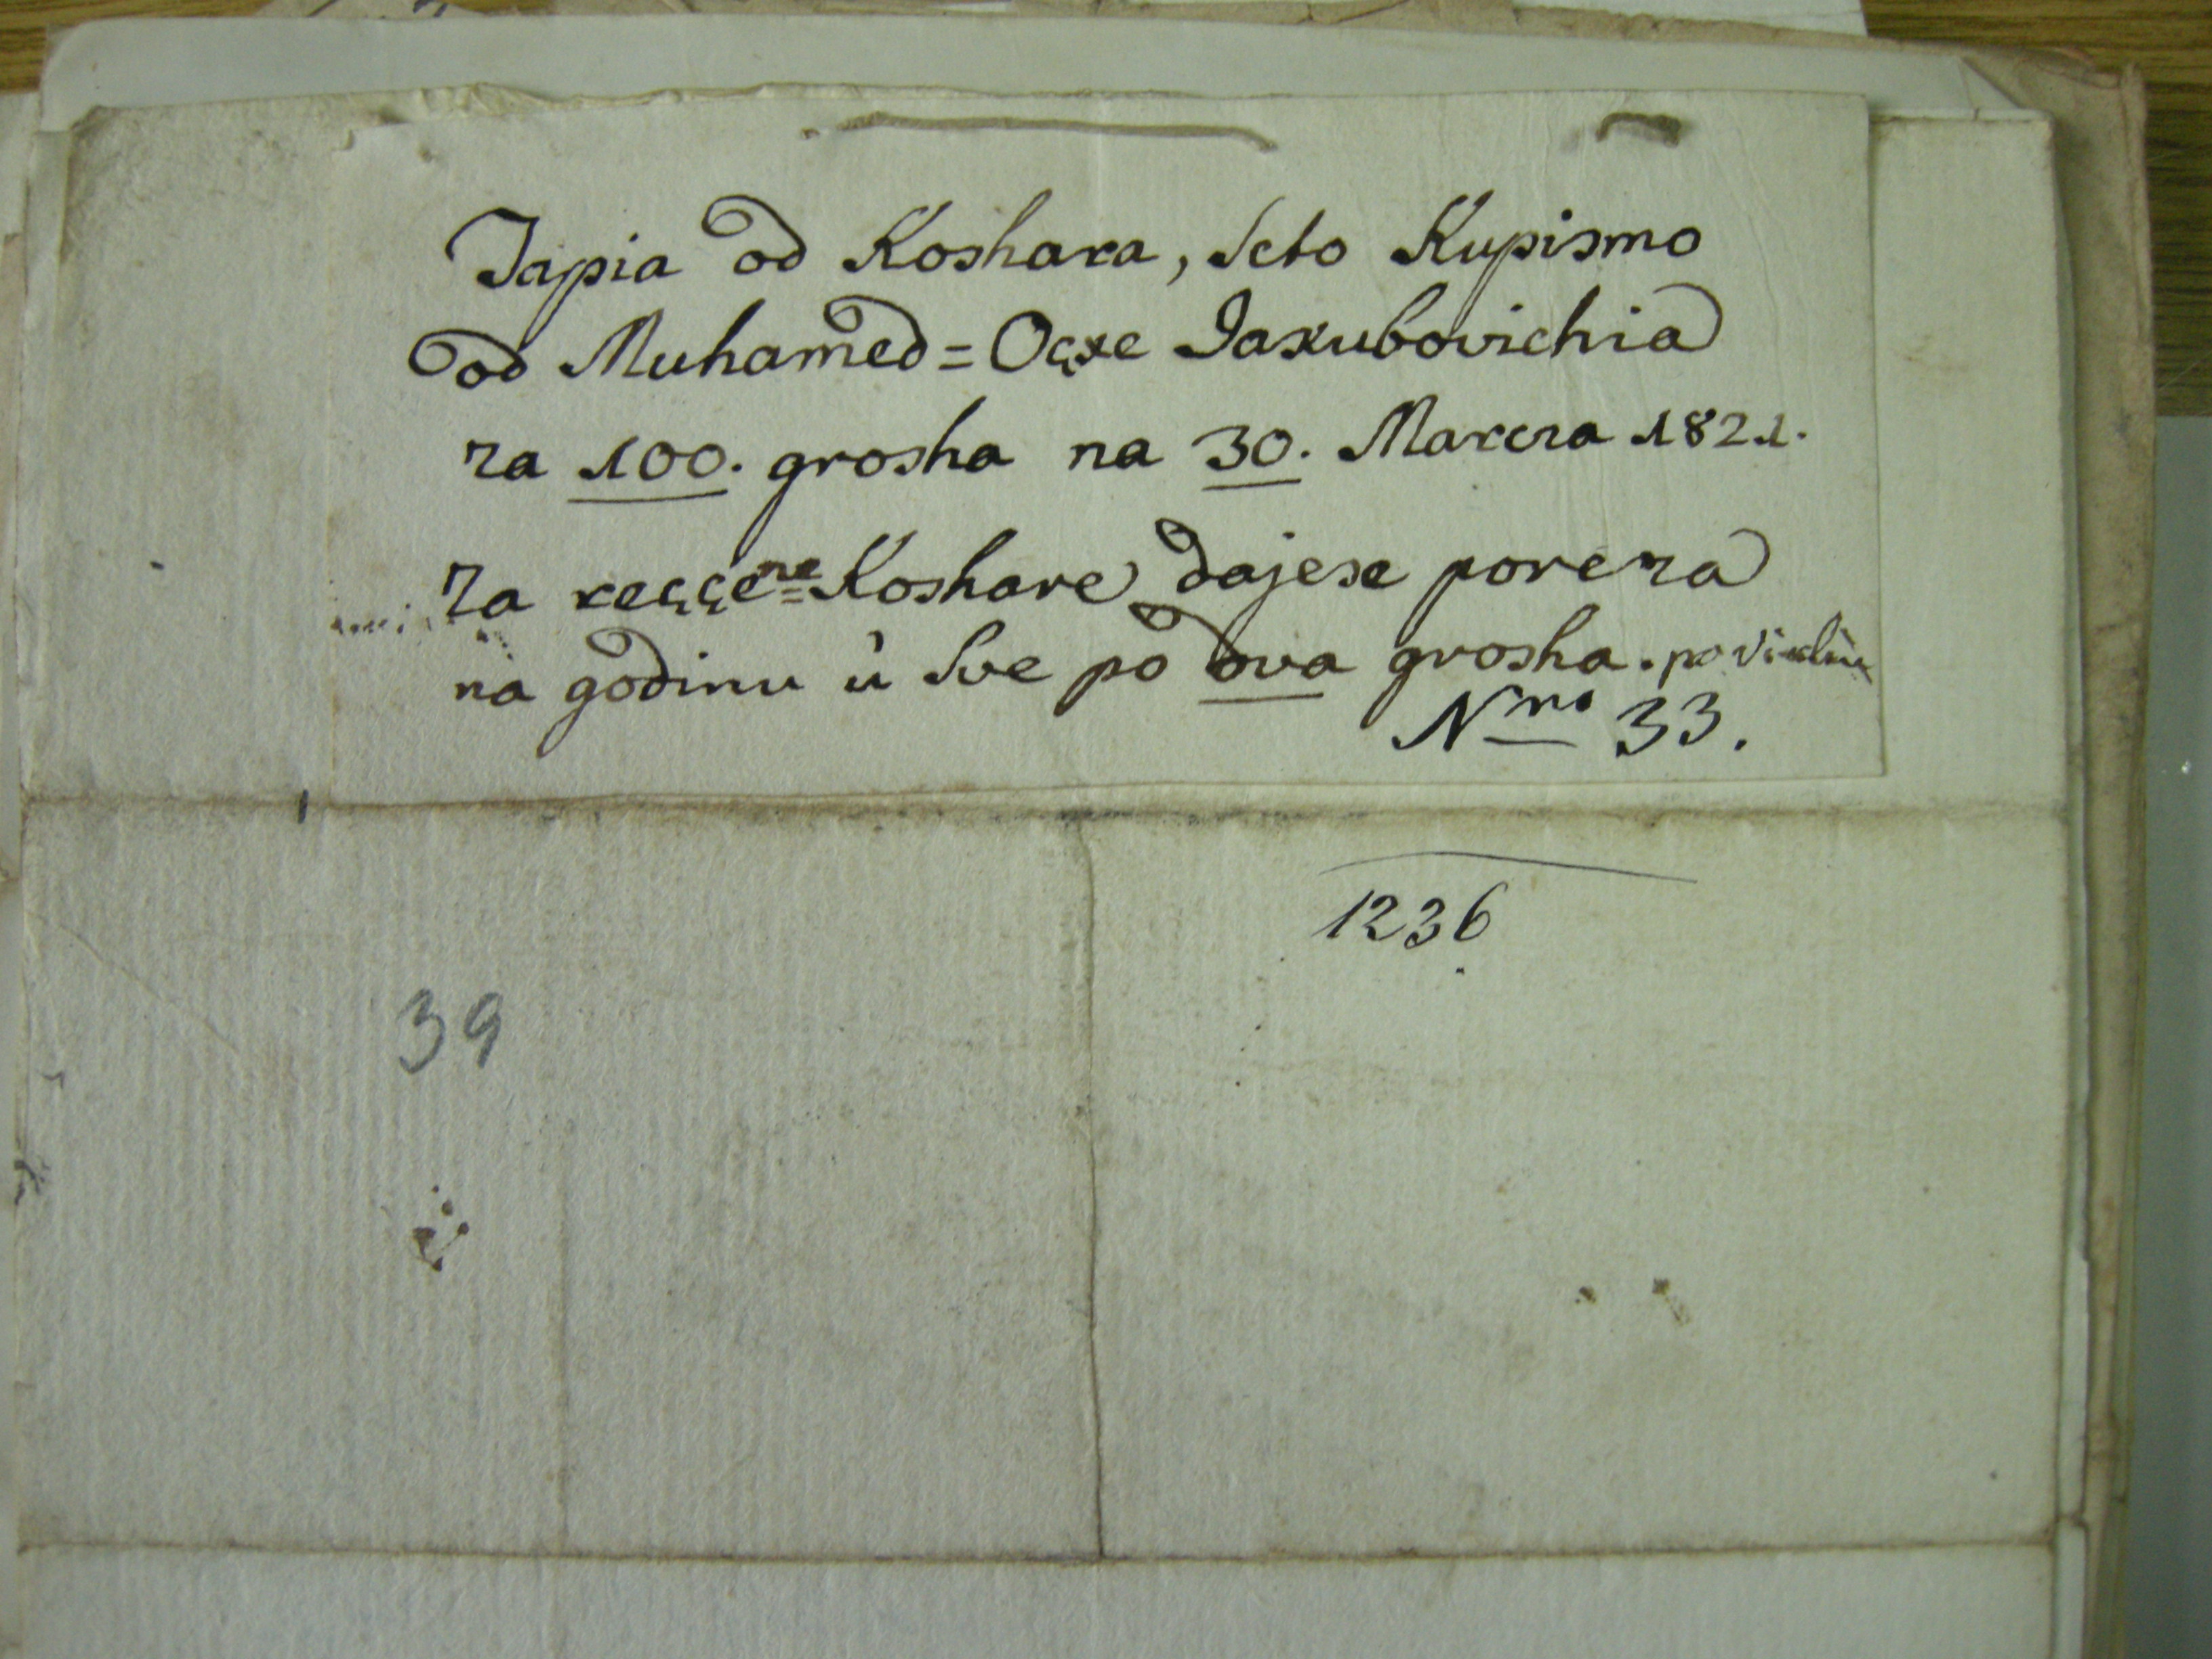 Tapia od Koshara, Scto Kupismo
od Muhamed=Oçxe Jaxubovichia
za 100. grosha na 30. Marcza 1821.
Za reççe=ne Koshare dajese poreza
na godinu ù Sve po dva grosha. po
Nro 33.
1236
39